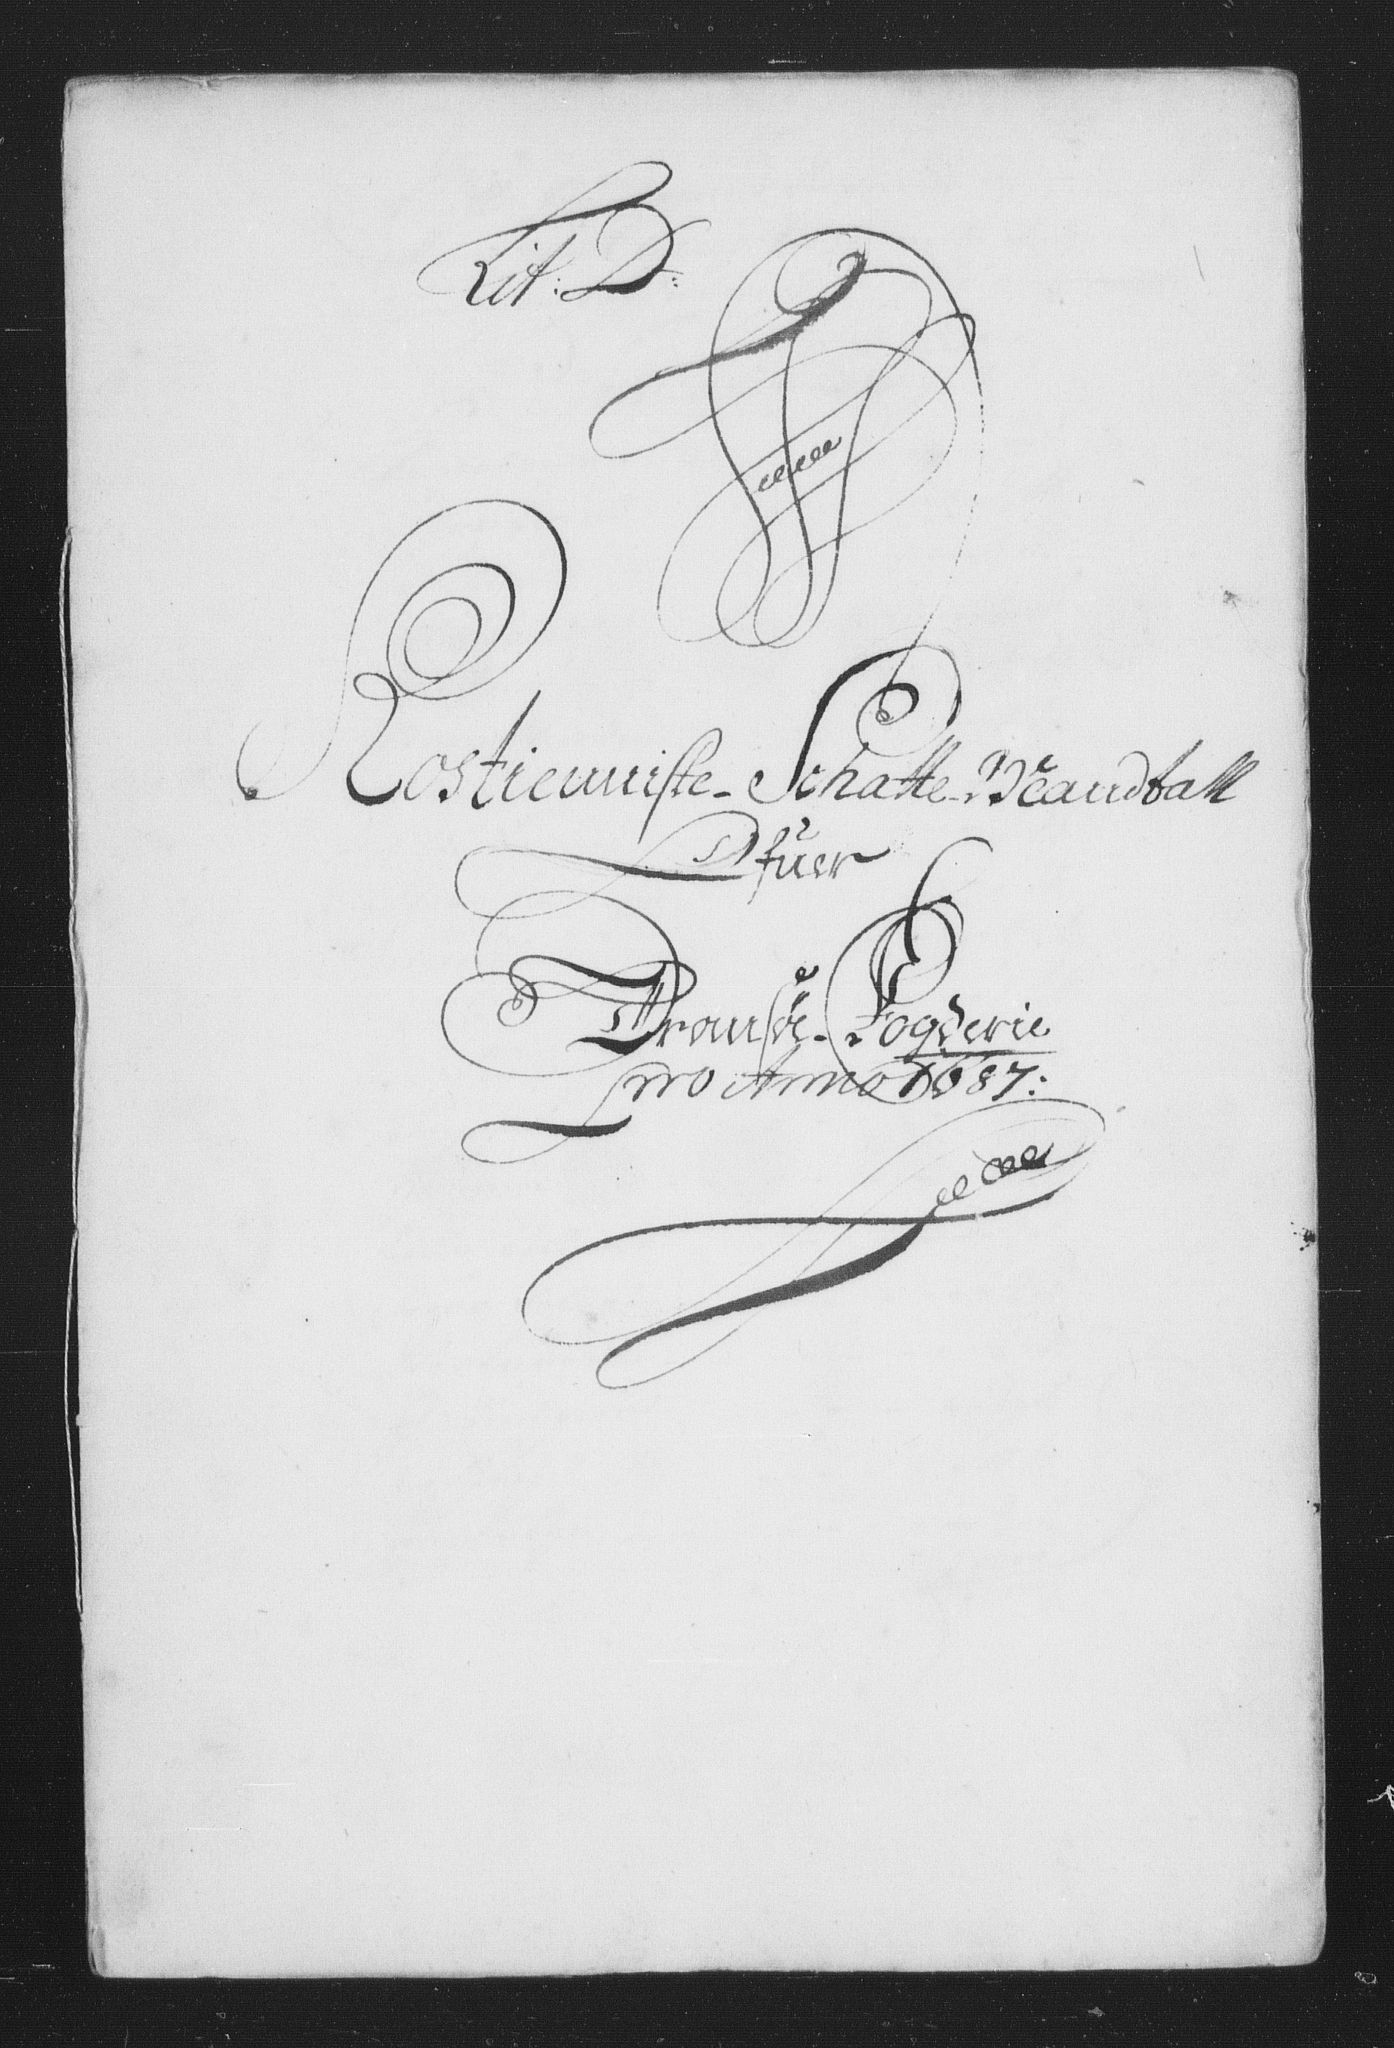 Lit: D:
Rostienniste Schatte Mandtall
Ofuer
Tromsöe Fogderie
pro Anno 1687: